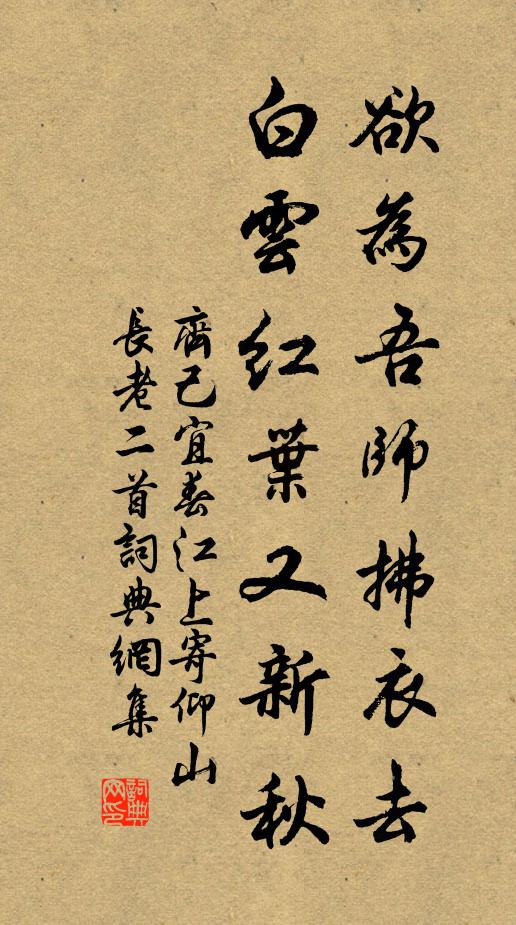 欲為吾師拂衣去
白雲紅葉又新秋
齊己宜春江上寄仰山
長老二首詞典網集
詞典網印